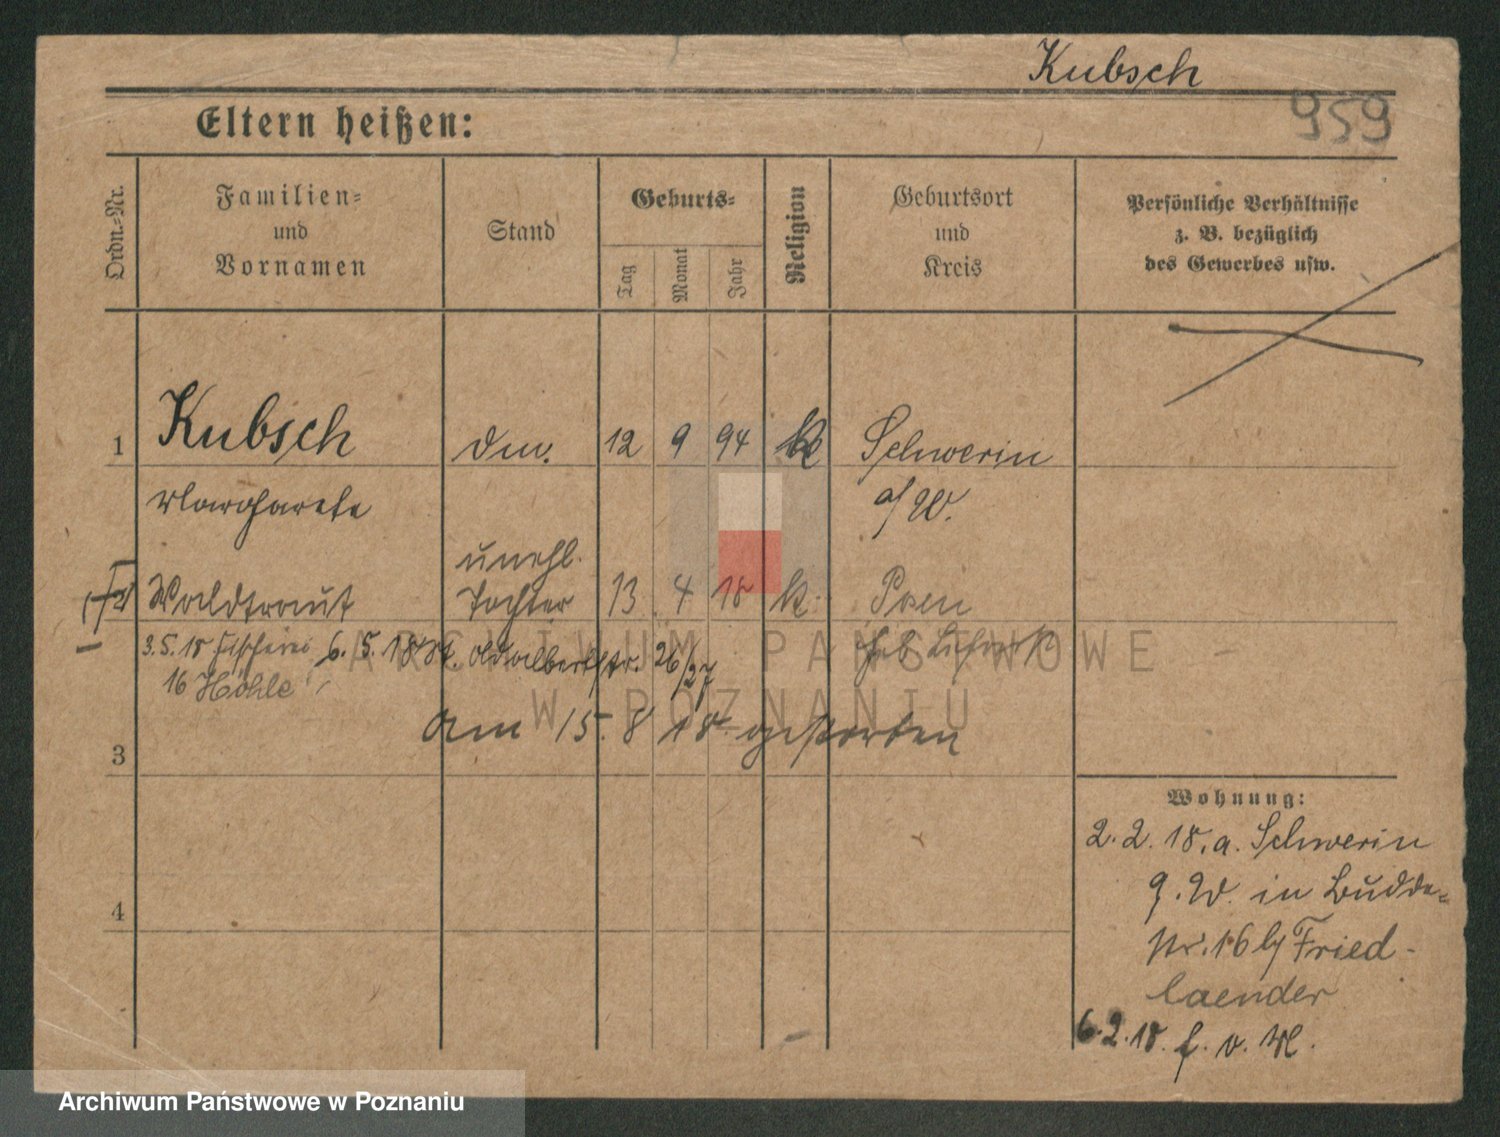 Kubsch
959
Eltern heißen:
Ordn.-Nr.
Familien-
und
Vornamen
Stand
Geburts-
Tag
Monat
Jahr
Religion
Geburtsort
und
Kreis
Persönliche Verhältnisse
z. B. bezüglich
des Gewerbes usw.
1 Kubsch 12 9 94 k Schwerin
Margarete a/W.
unehl.
Waldtraut Tochter 13 4 18 k. Posen
3.5.18 Fischerei 6. 5. 18 26/27
16 Höhle
am 15. 8 18 gestorben
3
4
Wohnung:
2. 2. 18. a. Schwerin
a. W. in Budde-
Nr. 16 b/ Fried-
laender
6. 2. 18. f. v. M.
ARCHIWUM PAŃSTWOWE
W POZNANIU
Archiwum Państwowe w Poznaniu